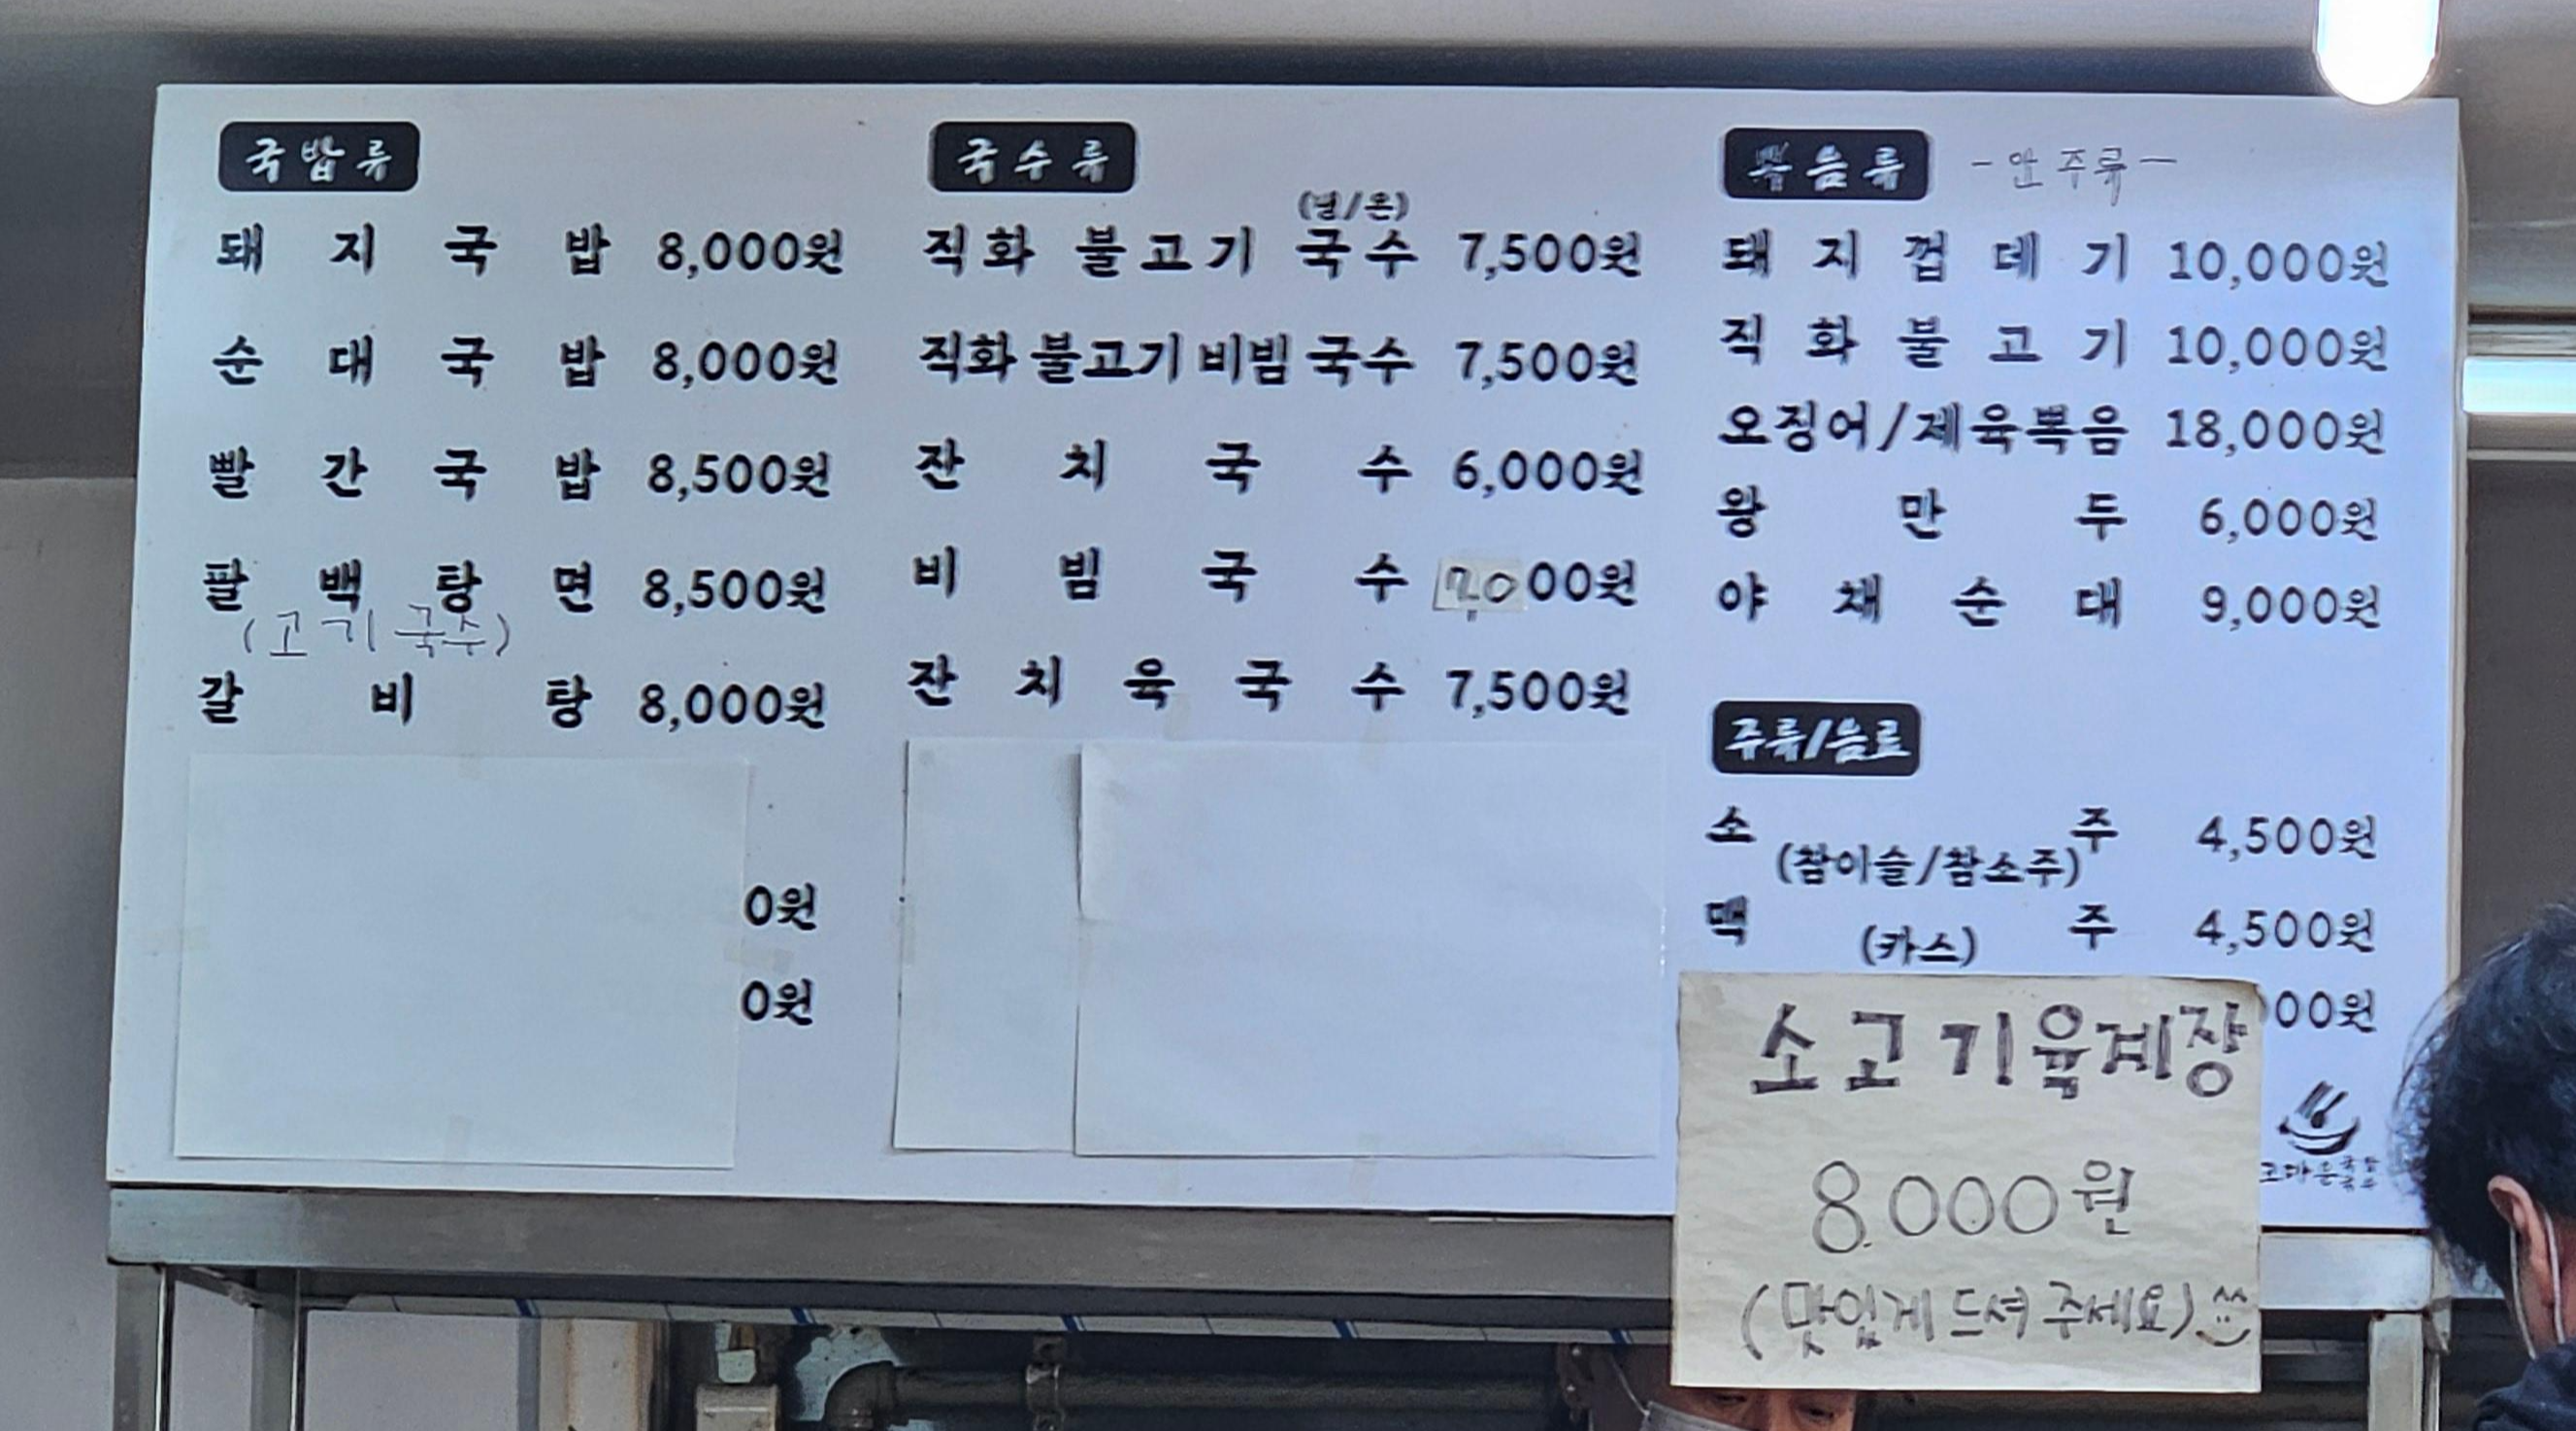 국밥류
돼지국밥 8,000원
순대국밥 8,000원
빨간국밥 8,500원
팔백탕면 8,500원
(고기국수)
갈비탕 8,000원
0원
0원
국수류
(냉/온)
직화 불고기 국수 7,500원
직화 불고기 비빔 국수 7,500원
잔치국수 6,000원
비빔국수 7,000원
잔치육국수 7,500원
볶음류 -안주류-
돼지껍데기 10,000원
직화불고기 10,000원
오징어/제육볶음 18,000원
왕만두 6,000원
야채순대 9,000원
주류/음료
소주 4,500원
(참이슬/참소주)
맥주 4,500원
(카스)
00원
소고기육계장
8.000원
(맛있게 드셔 주세요)